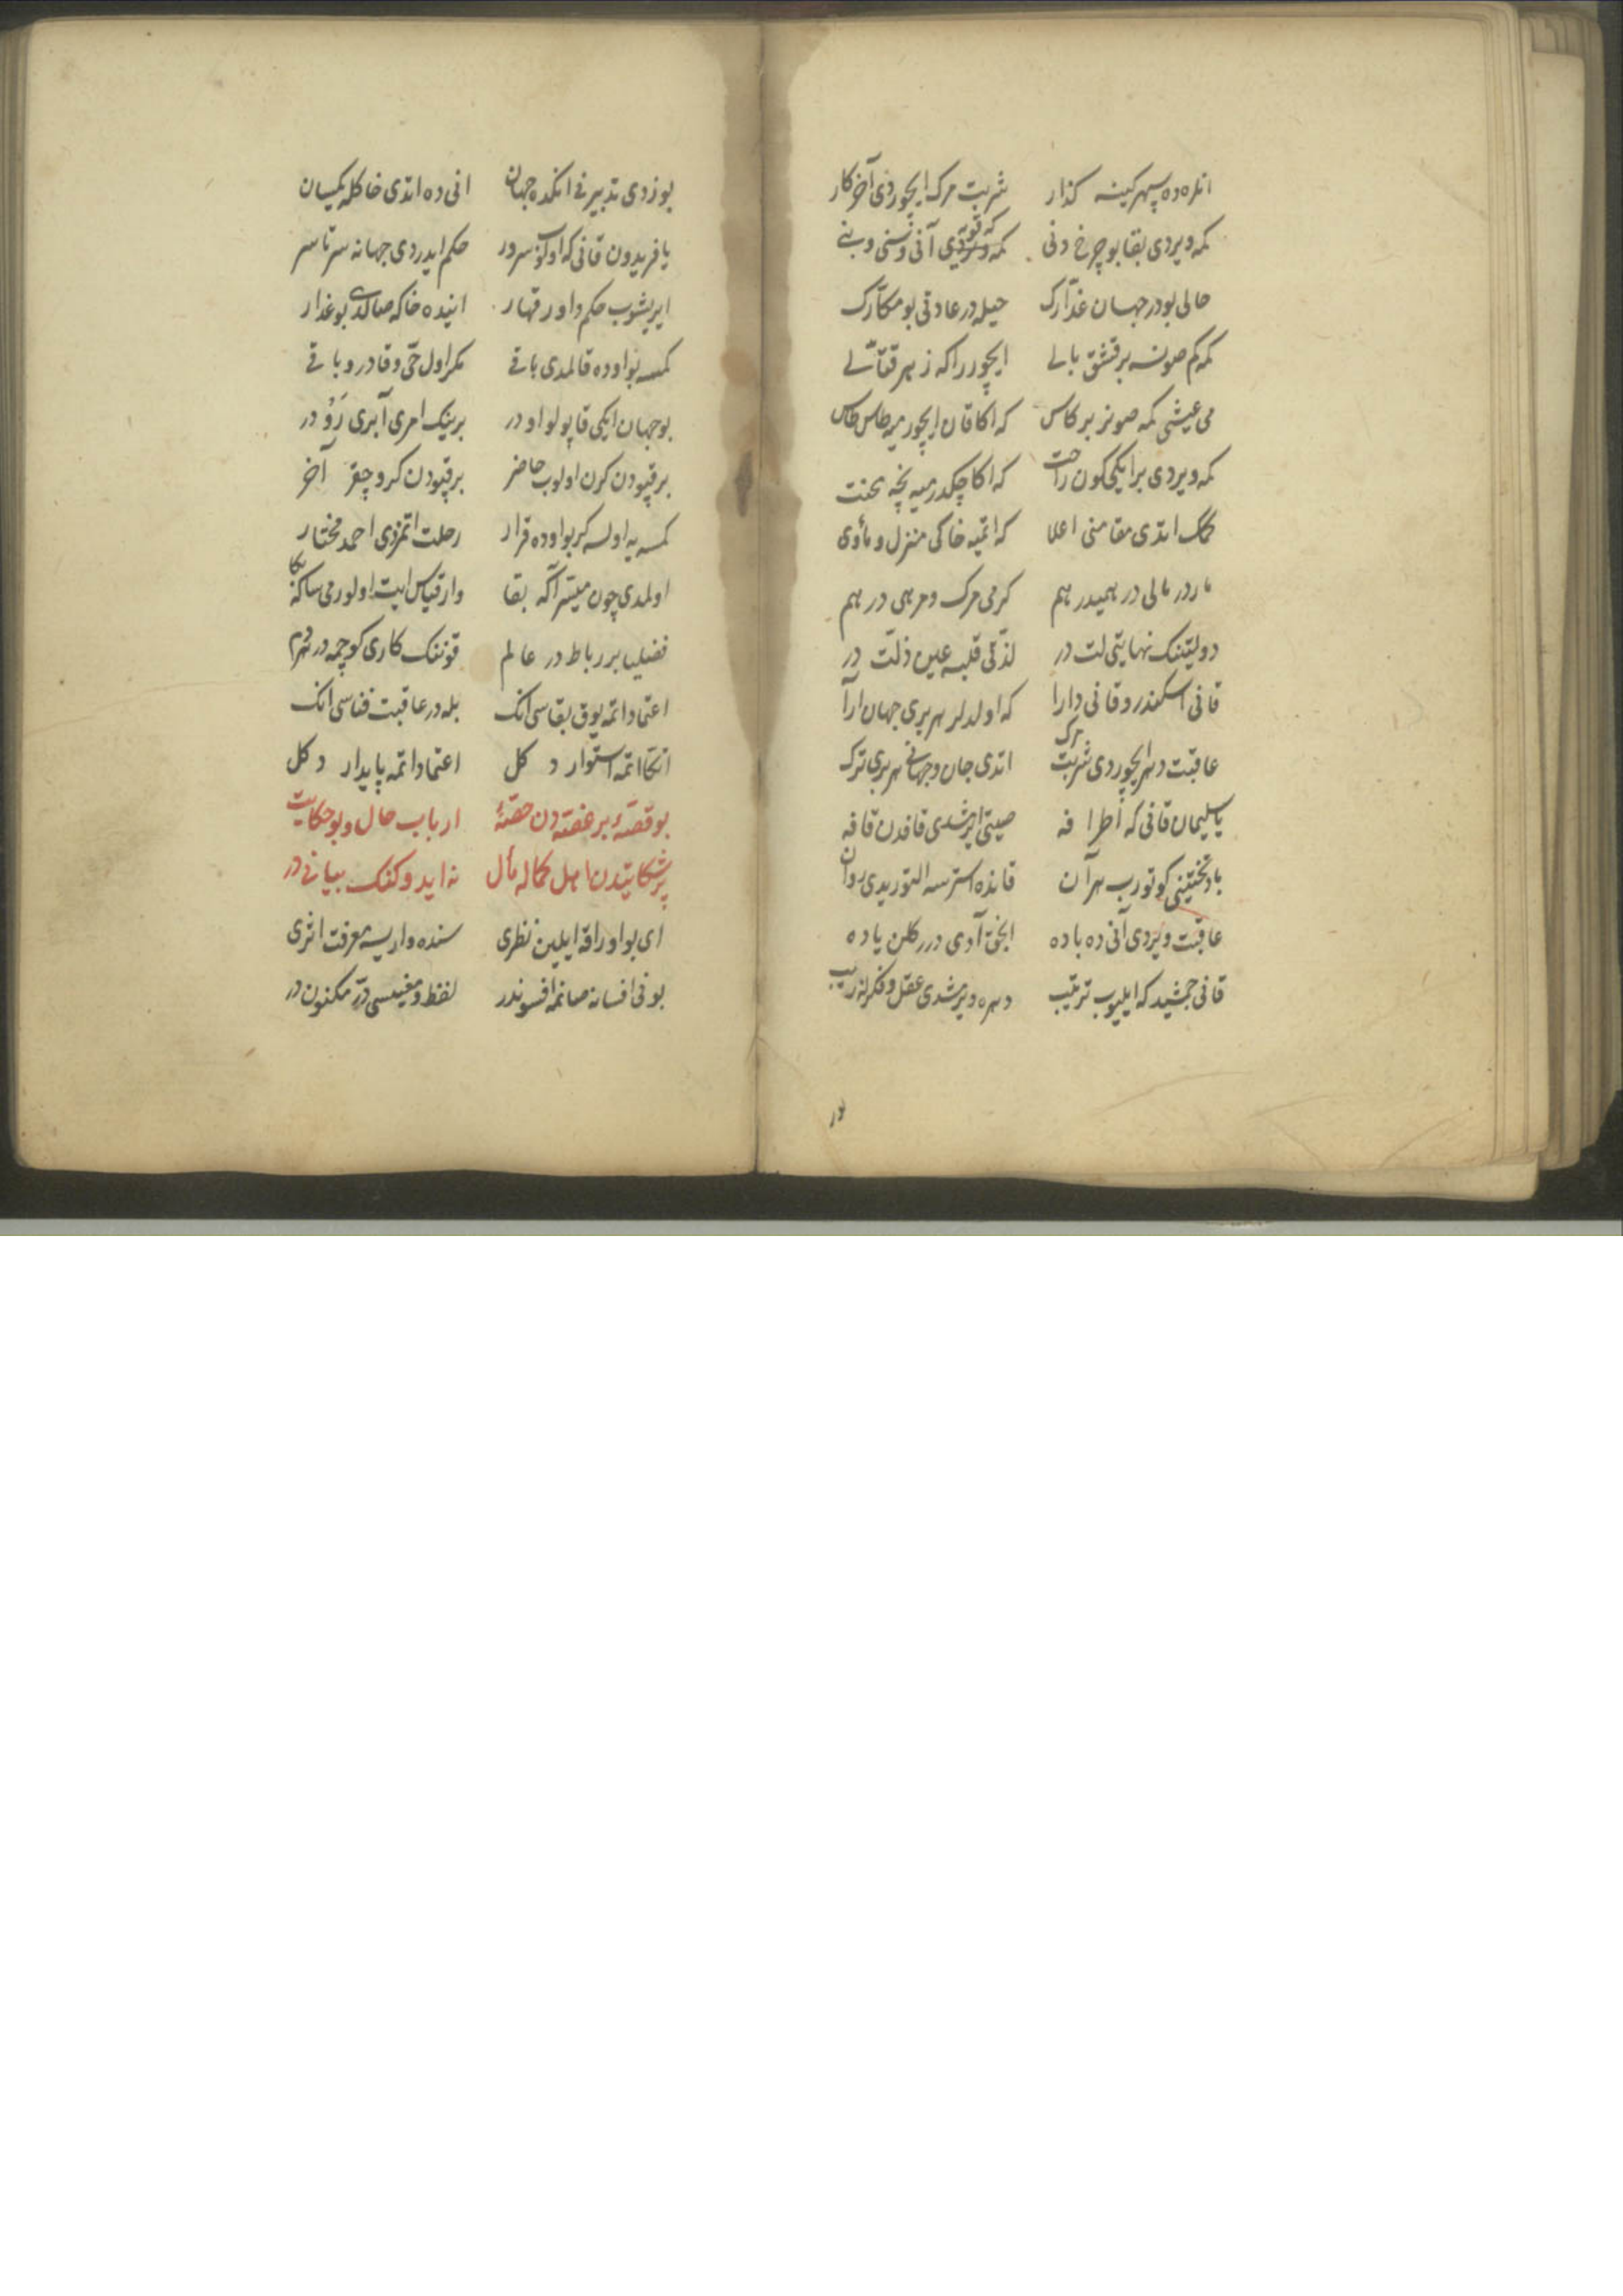 انلره ده سپهر کینه کذار شربت مرک ایچوردی آخر کار
کمه ویردی بقا بو چرخ دنی که قویه آنی و سنی و بنی
حالی بودر جهان غدّارک حیله در عادتی بو مکّارک
کمه کم صونسه بر قشق بالی ایچورر اکه زهر قتّالی
می عیشی کمه صونر بر کاس که اکا قان ایچورمیه طاس طاس
کمه ویردی بر ایکی کون راحت که اکا چکدرمیه نچه محنت
کمک ایتدی مقامنی اعلا که اتمیه خاکی منزل و مأوی
دولتنک نهایتی لت در لذّتی قلبه عین ذلّت در
قانی اسکندر و قانی دارا که اولدلر هر بری جهان آرا
عاقبت دهر ایچوردی شربت مرک اتدی جان و جهانی هر بری ترک
یا سلیمان قانی که اطرافه صیتی ایرشدی قافدن قافه
باد تختینی کوتورب هر آن قانده استرسه ایلتوریدی روان
عاقبت ویردی آنی ده باده انجق آدی درر کلن یاده
قانی جمشید که ایلیوب ترتیب دهره ویرمشدی عقل و فکرله زیب
بوزدی تدبیرنی انکده جهان انی ده اتدی خاکله یکسان
یا فریدون قانی که اولوب سرور حکم ایدردی جهانه سرتاسر
ایریشوب حکم داور قهار انیده خاکه صالدی بو غدار
کمسه بو اوده قالمدی باقی مکر اول حیّ و قادر و باقی
بو جهان ایکی قاپولو اودر برینک امری آبری رَوْ در
بر قپودن کرن اولوب حاضر بر قپودن کرو چقر آخر
کمسه یه اولسه کر بو اوده قرار رحلت اتمزدی احمد مختار
اولمدی چون میسّر اکه بقا وار قیاس ایت اولورمی ساکه بکا
فضلیا بر رباط در عالم قوننک کاری کوچمه در هر دم
اعتماد اتمه یوق بقاسی انک بله در عاقبت فناسی انک
اتکا اتمه استوار دکل اعتماد اتمه پایدار دکل
بو قصّهٔ بر غصّه دن حصّهٔ ارباب حال و بو حکایت
پر شکایتدن اهل کماله مأل نه ایدوکنک بیانی در
ای بو اوراقه ایلین نظری سنده وار یسه معرفت اثری
بونی افسانه صانمه افسوندر لفظ و معنیسی درّ مکنون در